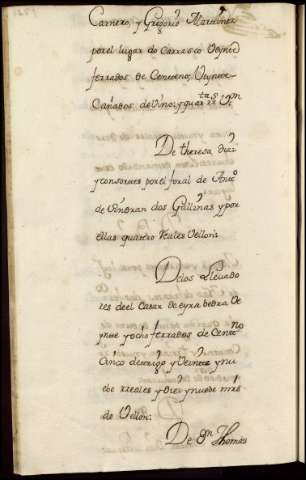 Carnero, y Gregorio Martinez
por el lugar do Carrasco Veynte
ferrados de Centeno, Veynte
Cañados de vino, y quarta rs. Vn.
De theresa diaz
y consortes por el foral de Anto
de dos Gallinas y por
ellas quattro Reales Vellon.
Delos Llevado
res del Casar de eyra bedra Ve
ynte y ocho ferrados de Centeno
Cinco de trigo y Veinte y nu
ebe rreales y diez y nuebe mrs
de Vellon:
De Dn Thomas